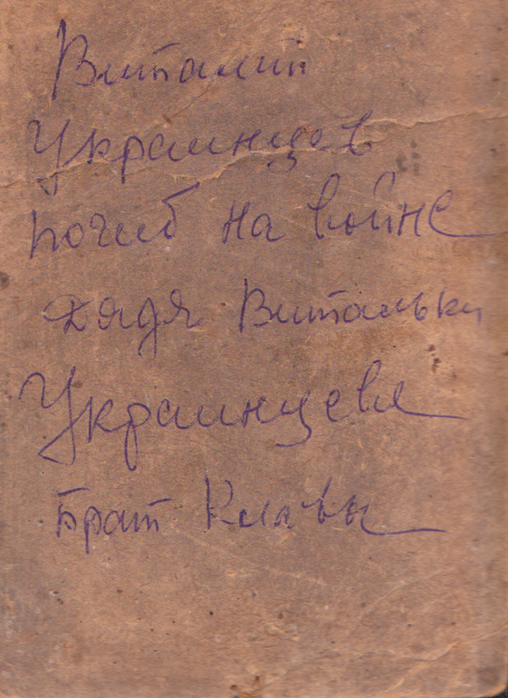 Виталий
Украинцев
погиб на войне
дядя Витальки
Украинцева
Брат Клавы